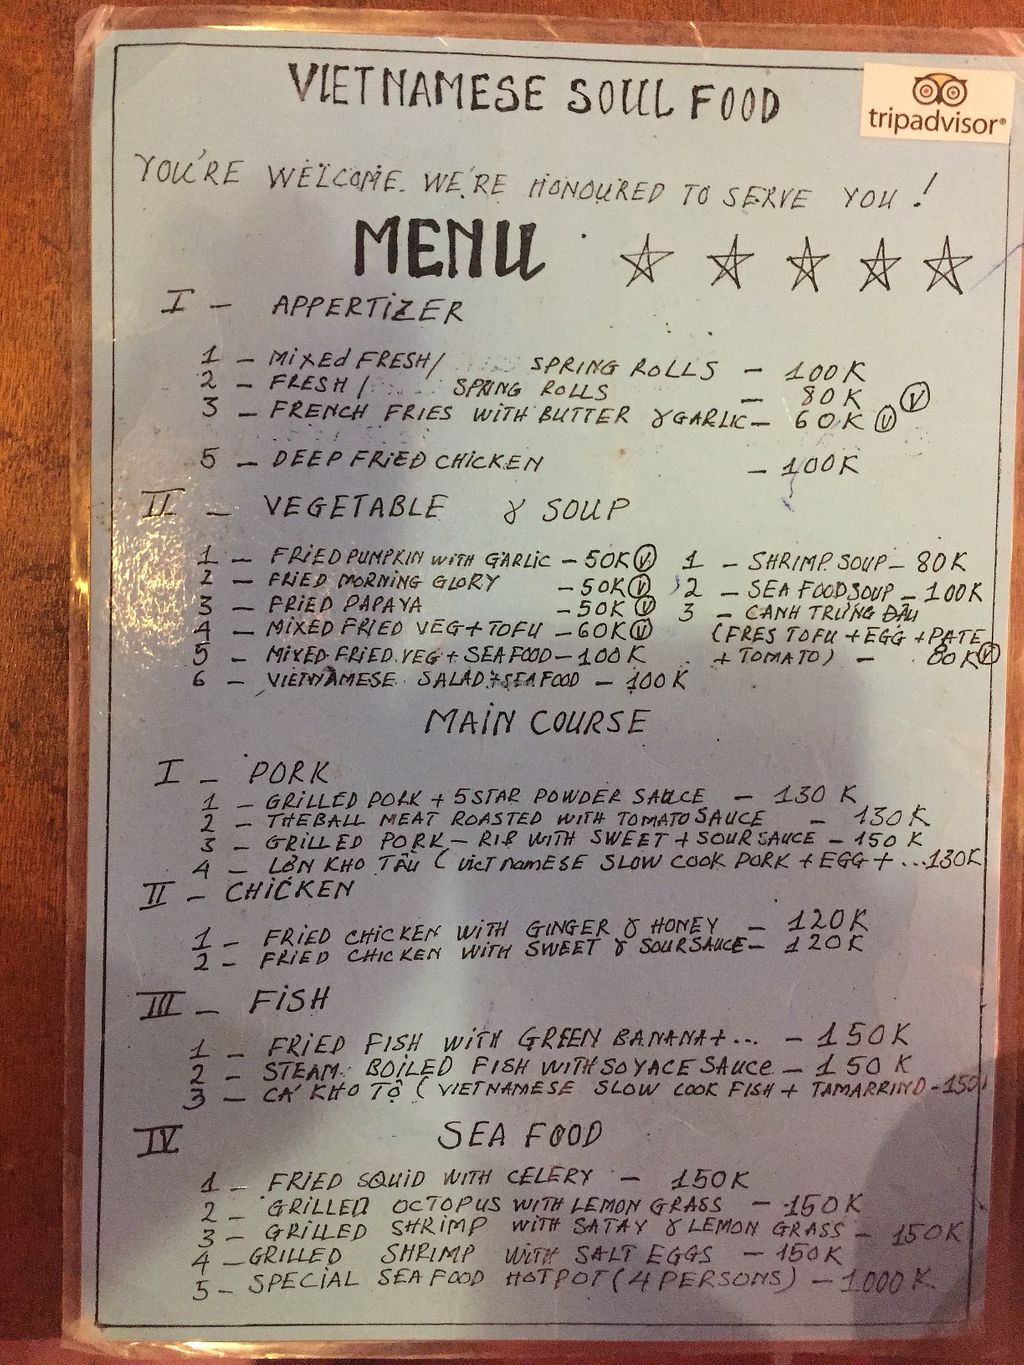 VIETNAMESE SOUL FOOD
tripadvisor®
YOU'RE WELCOME. WE'RE HONOURED TO SERVE YOU!
MENU
I - APPERTIZER
1 - MIXED FRESH/ SPRING ROLLS - 100K
2 - FRESH/ SPRING ROLLS - 80K V
3 - FRENCH FRIES WITH BUTTER & GARLIC - 60K V
5 - DEEP FRIED CHICKEN - 100K
II - VEGETABLE & SOUP
1 - FRIED PUMPKIN WITH GARLIC - 50K V
2 - FRIED MORNING GLORY - 50K V
3 - FRIED PAPAYA - 50K V
4 - MIXED FRIED VEG + TOFU - 60K V
5 - MIXED FRIED VEG + SEAFOOD - 100K
6 - VIETNAMESE SALAD + SEAFOOD - 100K
1 - SHRIMP SOUP - 80K
2 - SEA FOOD SOUP - 100K
3 - CANH TRỨNG ĐẬU
(FRES TOFU + EGG + PATE
+ TOMATO) - 80K V
MAIN COURSE
I - PORK
1 - GRILLED PORK + 5STAR POWDER SAUCE - 130K
2 - THEBALL MEAT ROASTED WITH TOMATO SAUCE - 130K
3 - GRILLED PORK - RIB WITH SWEET + SOUR SAUCE - 150K
4 - LỢN KHO TẦU (VIETNAMESE SLOW COOK PORK + EGG + ... 130K
II - CHICKEN
1 - FRIED CHICKEN WITH GINGER & HONEY - 120K
2 - FRIED CHICKEN WITH SWEET & SOUR SAUCE - 120K
III - FISH
1 - FRIED FISH WITH GREEN BANANA + ... - 150K
2 - STEAM BOILED FISH WITH SOYACE SAUCE - 150K
3 - CÁ KHO TỘ (VIETNAMESE SLOW COOK FISH + TAMARRIND - 150
IV SEA FOOD
1 - FRIED SQUID WITH CELERY - 150K
2 - GRILLED OCTOPUS WITH LEMON GRASS - 150K
3 - GRILLED SHRIMP WITH SATAY & LEMON GRASS - 150K
4 - GRILLED SHRIMP WITH SALT EGGS - 150K
5 - SPECIAL SEA FOOD HOTPOT (4 PERSONS) - 1000K